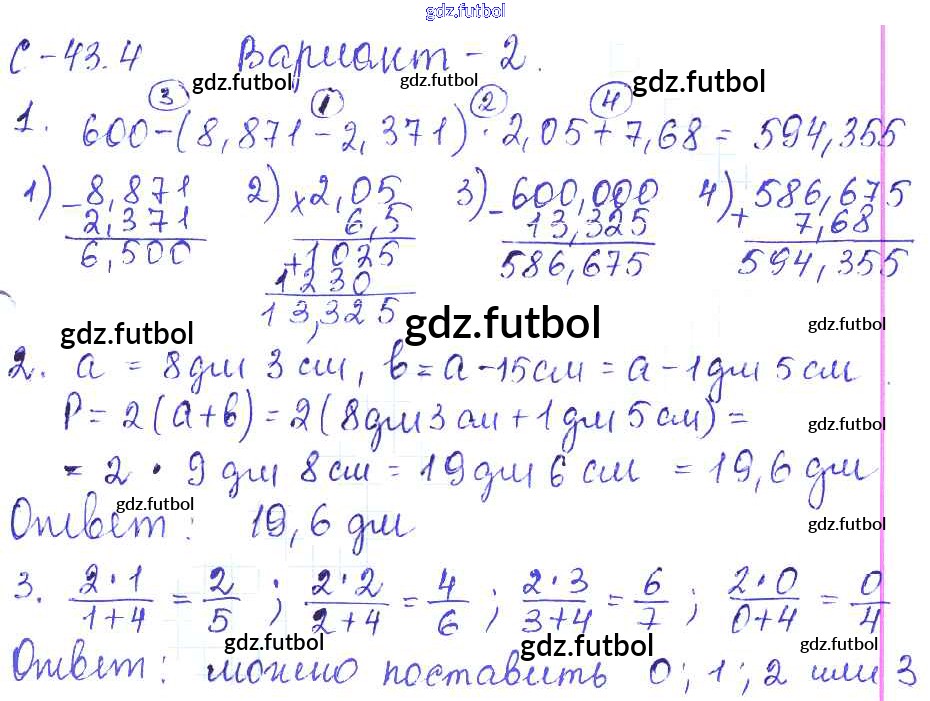 gdz.futbol
С-43.4 Вариант-2.
gdz.futbol gdz.futbol gdz.futbol
③ ① ② ④
1. 600-(8,871-2,371)·2,05+7,68=594,355
1) -8,871 2) ×2,05 3) -600,000 4) +586,675
2,371 6,5 13,325 7,68
6,500 +1025 586,675 594,355
1230
13,325
gdz.futbol gdz.futbol gdz.futbol
2. a = 8дм 3 см, в=a-15см=a-1дм 5 см
P=2(a+в)=2(8дм3см+1дм5см)=
gdz.futbol
=2·9 дм 8см=19дм 6 см =19,6 дм
gdz.futbol gdz.futbol
Ответ: 19,6 дм
3. 2·1/1+4 = 2/5 ; 2·2/2+4 = 4/6 ; 2·3/3+4 = 6/7 ; 2·0/0+4 = 0/4
gdz.futbol gdz.futbol gdz.futbol
Ответ: можно поставить 0;1;2 или 3